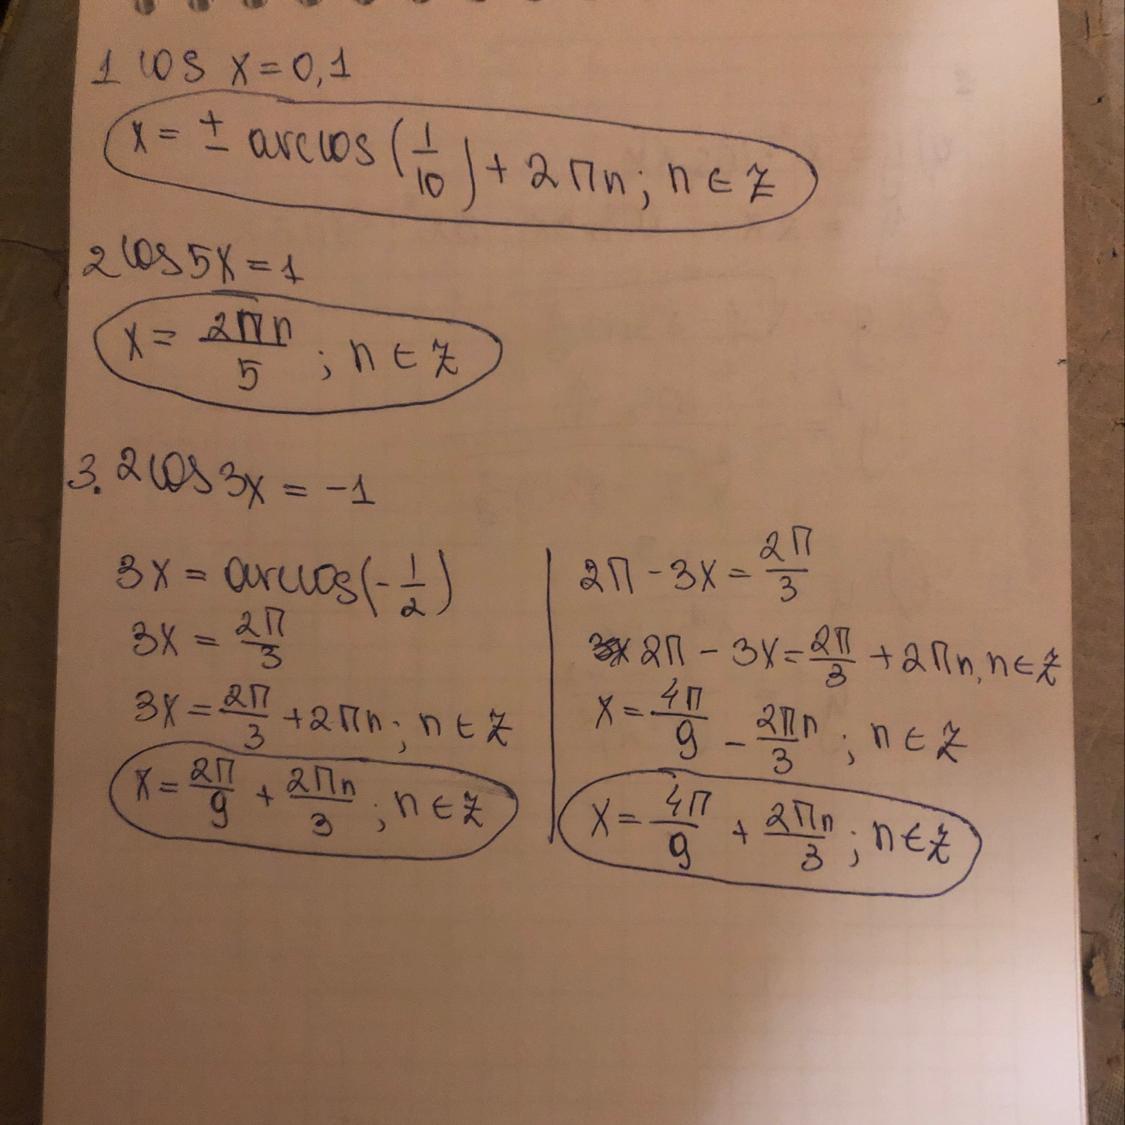 1 cos x = 0,1
x = ± arccos (1/10) + 2πn; n ∈ Z
2 cos 5x = 1
x = 2πn/5 ; n ∈ Z
3. 2cos 3x = -1
3x = arccos(-1/2)
3x = 2π/3
3x = 2π/3 + 2πn; n ∈ Z
x = 2π/9 + 2πn/3 ; n ∈ Z
2π - 3x = 2π/3
2π - 3x = 2π/3 + 2πn, n ∈ Z
x = 4π/9 - 2πn/3 ; n ∈ Z
x = 4π/9 + 2πn/3 ; n ∈ Z